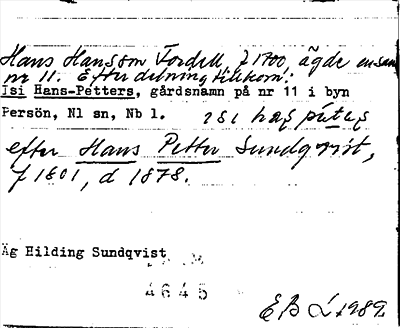 Hans Hansson Fordell, f 1700, ägde ensam
nr 11. Efter delning tillkom:
Isi Hans-Petters, gårdsnamn på nr 11 i byn
Persön, Nl sn, Nb l.
efter Hans Petter Sundqvist,
f 1801, d 1878.
Äg Hilding Sundqvist
4645
EB L 1989